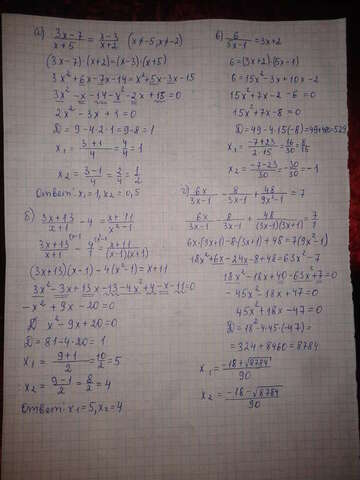 а) (3x-7)/(x+5) = (x-3)/(x+2) (x≠-5, x≠-2)
(3x-7)·(x+2)=(x-3)·(x+5)
3x²+6x-7x-14=x²+5x-3x-15
3x²-x-14-x²-2x+15=0
2x²-3x+1=0
D=9-4·2·1=9-8=1
x₁=(3+1)/4=4/4=1
x₂=(3-1)/4=2/4=1/2
Ответ: x₁=1, x₂=0,5
б) (3x+13)/(x+1) - 4 = (x+11)/(x²-1)
(3x+13)/(x+1) - 4/1 = (x+11)/(x-1)(x+1)
(3x+13)(x-1)-4(x²-1)=x+11
3x²-3x+13x-13-4x²+4-x-11=0
-x²+9x-20=0
x²-9x+20=0
D=81-4·20=1
x₁=(9+1)/2=10/2=5
x₂=(9-1)/2=8/2=4
Ответ: x₁=5, x₂=4
в) 6/(3x-1)=3x+2
6=(3x+2)·(5x-1)
6=15x²-3x+10x-2
15x²+7x-2-6=0
15x²+7x-8=0
D=49-4·15(-8)=49+480=529
x₁=(-7+23)/(2·15)=16/30=8/15
x₂=(-7-23)/30=-30/30=-1
г) 6x/(3x-1) - 8/(3x-1) + 48/(9x²-1) = 7
6x/(3x-1) - 8/(3x+1) + 48/(3x-1)(3x+1) = 7/1
6x·(3x+1)-8·(3x+1)+48=7(9x²-1)
18x²+6x-24x-8+48=63x²-7
18x²-18x+40-63x²+7=0
-45x²-18x+47=0
45x²+18x-47=0
D=18²-4·45·(-47)=
=324+8460=8784
x₁=(-18+√8784)/90
x₂=(-18-√8784)/90